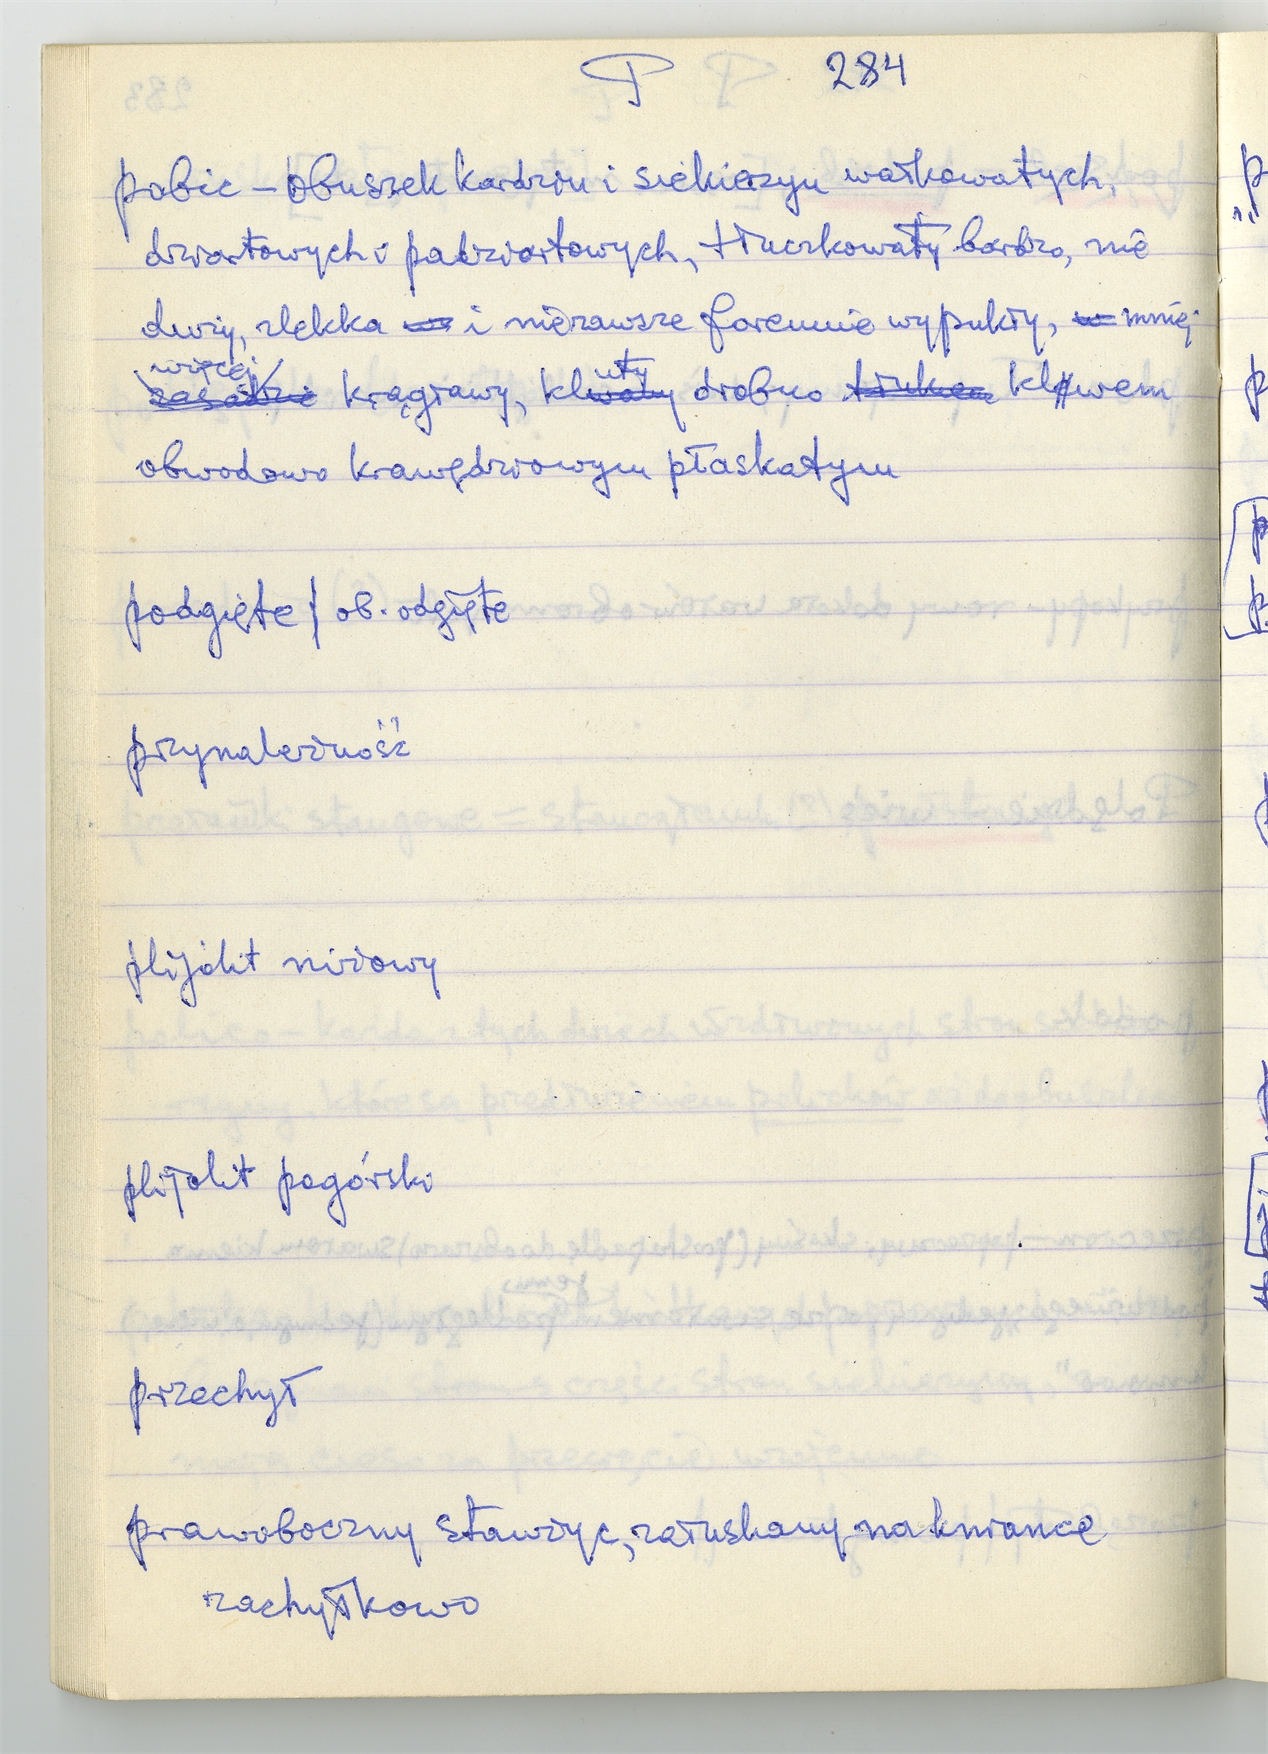 P 284
pobic – obuszek kardziu i siekierzyn wałkowatych,
dziartowych i padziartowych, tłuczkowaty bardzo, nie
duży, zlekka i niezawsze foremnie wypukły, mniej
więcej
zasadnie krągławy, kluty drobno kluwem
obwodowo krawędziowym płaskatym
podgięte / ob. odgięte
przynależność
plijolit niżowy
plijolit pogórski
przechył
prawoboczny stawżyc, załuskany na kniance
zachyłkowo